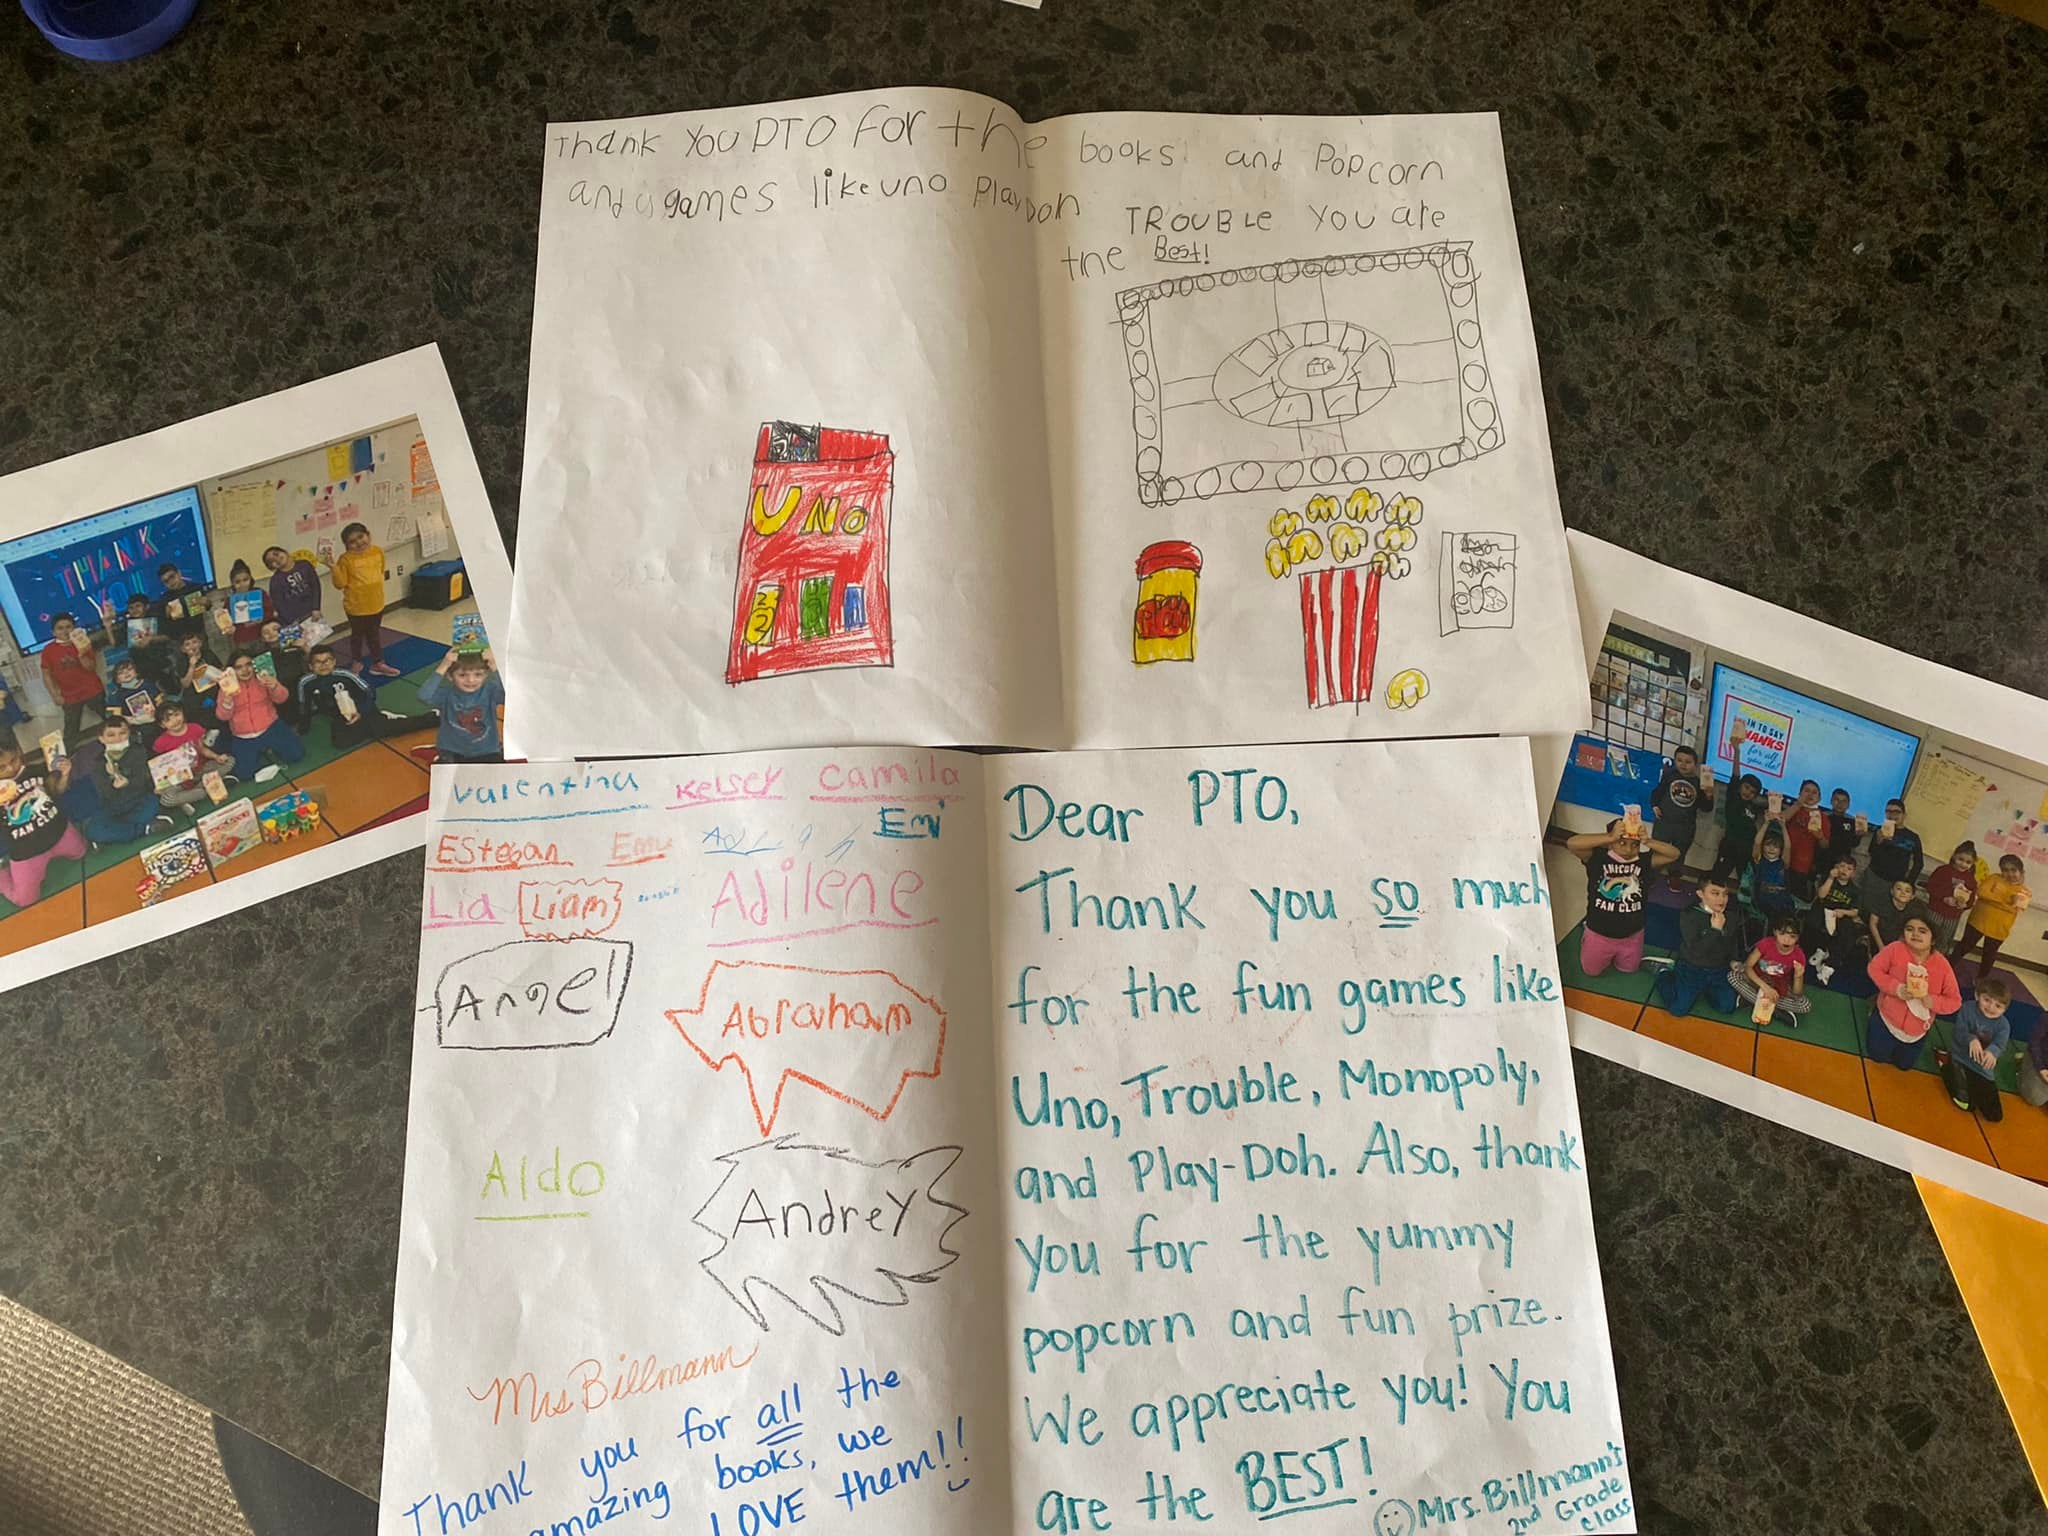 Thank You PTO For the books and Popcorn
and games like uno Playdoh TROUBLE You are
the Best!
UNO
2
2
THANK
YOU
IN TO SAY
THANKS
for all
you do!
UNICORN
FAN CLUB
FAN CLUB
Valentina Kelsey Camila
Esteban Emi
Lia Liam Adilene
Angel Abraham
Aldo Andrey
Mrs Billmann
Thank you for all the
amazing books, we
LOVE them!!
Dear PTO,
Thank you so much
for the fun games like
Uno, Trouble, Monopoly,
and Play-Doh. Also, thank
you for the yummy
popcorn and fun prize.
We appreciate you! You
are the BEST!
Mrs. Billmann's
2nd Grade
Class